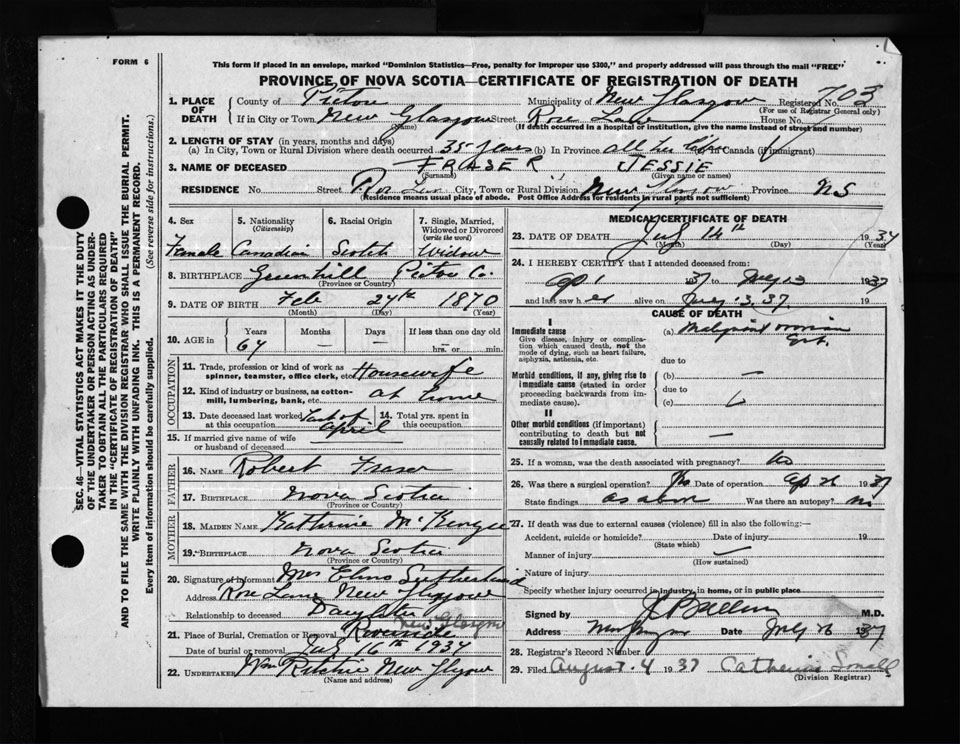 FORM 6
This form if placed in an envelope, marked "Dominion Statistics—Free, penalty for improper use $300," and properly addressed will pass through the mail "FREE"
PROVINCE OF NOVA SCOTIA—CERTIFICATE OF REGISTRATION OF DEATH
1. PLACE OF DEATH County of Pictou Municipality of New Glasgow Registered No. 703
(For use of Registrar General only)
If in City or Town New Glasgow Street Rose Lane House No.
(Name) (If death occurred in a hospital or institution, give the name instead of street and number)
2. LENGTH OF STAY (in years, months and days)
(a) In City, Town or Rural Division where death occurred 35 years (b) In Province all her life (c) In Canada (if immigrant)
3. NAME OF DECEASED FRASER JESSIE
(Surname) (Given name or names)
RESIDENCE No. Street Rose Lane City, Town or Rural Division New Glasgow Province N S
(Residence means usual place of abode. Post Office Address for residents in rural parts not sufficient)
4. Sex 5. Nationality (Citizenship) 6. Racial Origin 7. Single, Married, Widowed or Divorced (write the word)
Female Canadian Scotch Widow
8. BIRTHPLACE Greenhill Pictou Co.
(Province or Country)
9. DATE OF BIRTH Feb 24th 1870
(Month) (Day) (Year)
10. AGE in Years Months Days If less than one day old
64 — — hrs. or min.
OCCUPATION
11. Trade, profession or kind of work as spinner, teamster, office clerk, etc. Housewife
12. Kind of industry or business, as cotton-mill, lumbering, bank, etc. at home
13. Date deceased last worked at this occupation Last of April 14. Total yrs. spent in this occupation
15. If married give name of wife or husband of deceased
FATHER
16. NAME Robert Fraser
17. BIRTHPLACE Nova Scotia
(Province or Country)
MOTHER
18. MAIDEN NAME Katherine McKenzie
19. BIRTHPLACE Nova Scotia
(Province or Country)
20. Signature of Informant Mrs Sutherland
Address Rose Lane New Glasgow
Relationship to deceased Daughter
New Glasgow
21. Place of Burial, Cremation or Removal Riverside
Date of burial or removal July 16th 1937
22. UNDERTAKER Wm Ritchie New Glasgow
(Name and address)
MEDICAL CERTIFICATE OF DEATH
23. DATE OF DEATH July 14th 1937
(Month) (Day) (Year)
24. I HEREBY CERTIFY that I attended deceased from:
Ap 1 37 to July 13 1937
and last saw her alive on July 13, 37 19
CAUSE OF DEATH
I
Immediate cause (a) Malignant
Give disease, injury or complication which caused death, not the mode of dying, such as heart failure, asphyxia, asthenia, etc.
due to
Morbid conditions, if any, giving rise to immediate cause (stated in order proceeding backwards from immediate cause). (b) —
due to
(c)
II
Other morbid conditions (if important) contributing to death but not causally related to immediate cause. —
25. If a woman, was the death associated with pregnancy? No
26. Was there a surgical operation? Date of operation Ap 26 1937
State findings as above Was there an autopsy? no
27. If death was due to external causes (violence) fill in also the following:—
Accident, suicide or homicide? Date of injury 19
(State which)
Manner of injury
(How sustained)
Nature of injury
Specify whether injury occurred in industry, in home, or in public place
Signed by M.D.
Address New Glasgow Date July 26 1937
28. Registrar's Record Number
29. Filed August 4 1937 Catherine Small
(Division Registrar)
SEC. 46—VITAL STATISTICS ACT MAKES IT THE DUTY
OF THE UNDERTAKER OR PERSON ACTING AS UNDER-
TAKER TO OBTAIN ALL THE PARTICULARS REQUIRED
IN THE "CERTIFICATE OF REGISTRATION OF DEATH"
AND TO FILE THE SAME WITH THE DIVISION REGISTRAR WHO SHALL ISSUE THE BURIAL PERMIT.
WRITE PLAINLY WITH UNFADING INK. THIS IS A PERMANENT RECORD.
Every item of information should be carefully supplied. (See reverse side for instructions.)